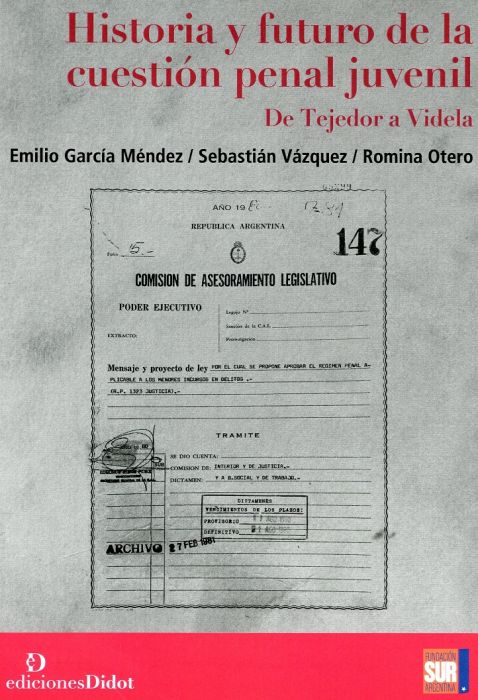 Historia y futuro de la
cuestión penal juvenil
De Tejedor a Videla
Emilio García Méndez / Sebastián Vázquez / Romina Otero
AÑO 19
REPUBLICA ARGENTINA
147
COMISION DE ASESORAMIENTO LEGISLATIVO
PODER EJECUTIVO
Legajo Nº
Sección de la C.A.L.
EXTRACTO:
Mensaje y proyecto de ley POR EL CUAL SE PROPONE APROBAR EL REGIMEN PENAL A-
PLICABLE A LOS MENORES INCURSOS EN DELITOS .-
TRAMITE
SE DIO CUENTA:
COMISION DE: INTERIOR Y DE JUSTICIA.-
DICTAMEN: Y A B.SOCIAL Y DE TRABAJO.-
DICTAMENES
VENCIMIENTOS DE LOS PLAZOS:
PROVISORIO
DEFINITIVO
ARCHIVO 27 FEB 1981
edicionesDidot
FUNDACIÓN
SUR
ARGENTINA